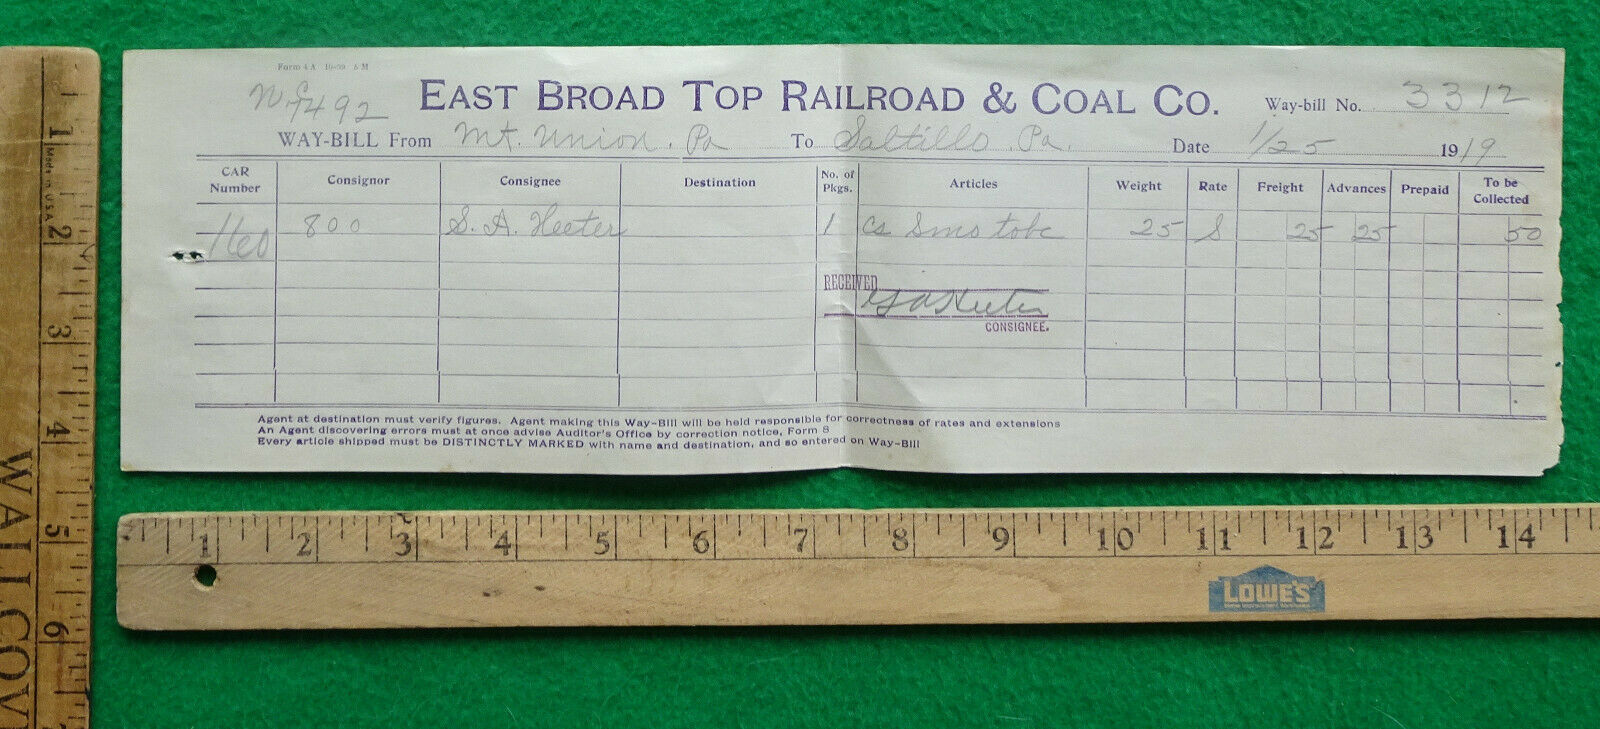 Form 4 A 10-09 5 M
EAST BROAD TOP RAILROAD & COAL CO.
Way-bill No. 3312
492
WAY-BILL From Mt. Union. Pa To Saltillo. Pa. Date 1/25 1919
CAR Number Consignor Consignee Destination No. of Pkgs. Articles Weight Rate Freight Advances Prepaid To be Collected
160 800 S. A. Heeter 1 Cs Smo tobc 25 S 25 25 50
RECEIVED
S A Heeter
CONSIGNEE.
Agent at destination must verify figures. Agent making this Way-Bill will be held responsible for correctness of rates and extensions
An Agent discovering errors must at once advise Auditor's Office by correction notice, Form 8
Every article shipped must be DISTINCTLY MARKED with name and destination, and so entered on Way-Bill
1 2 3 4 5 6 7 8 9 10 11 12 13 14
LOWE'S
1 2 3 4 5 6
Made in U.S.A.
WALL COV